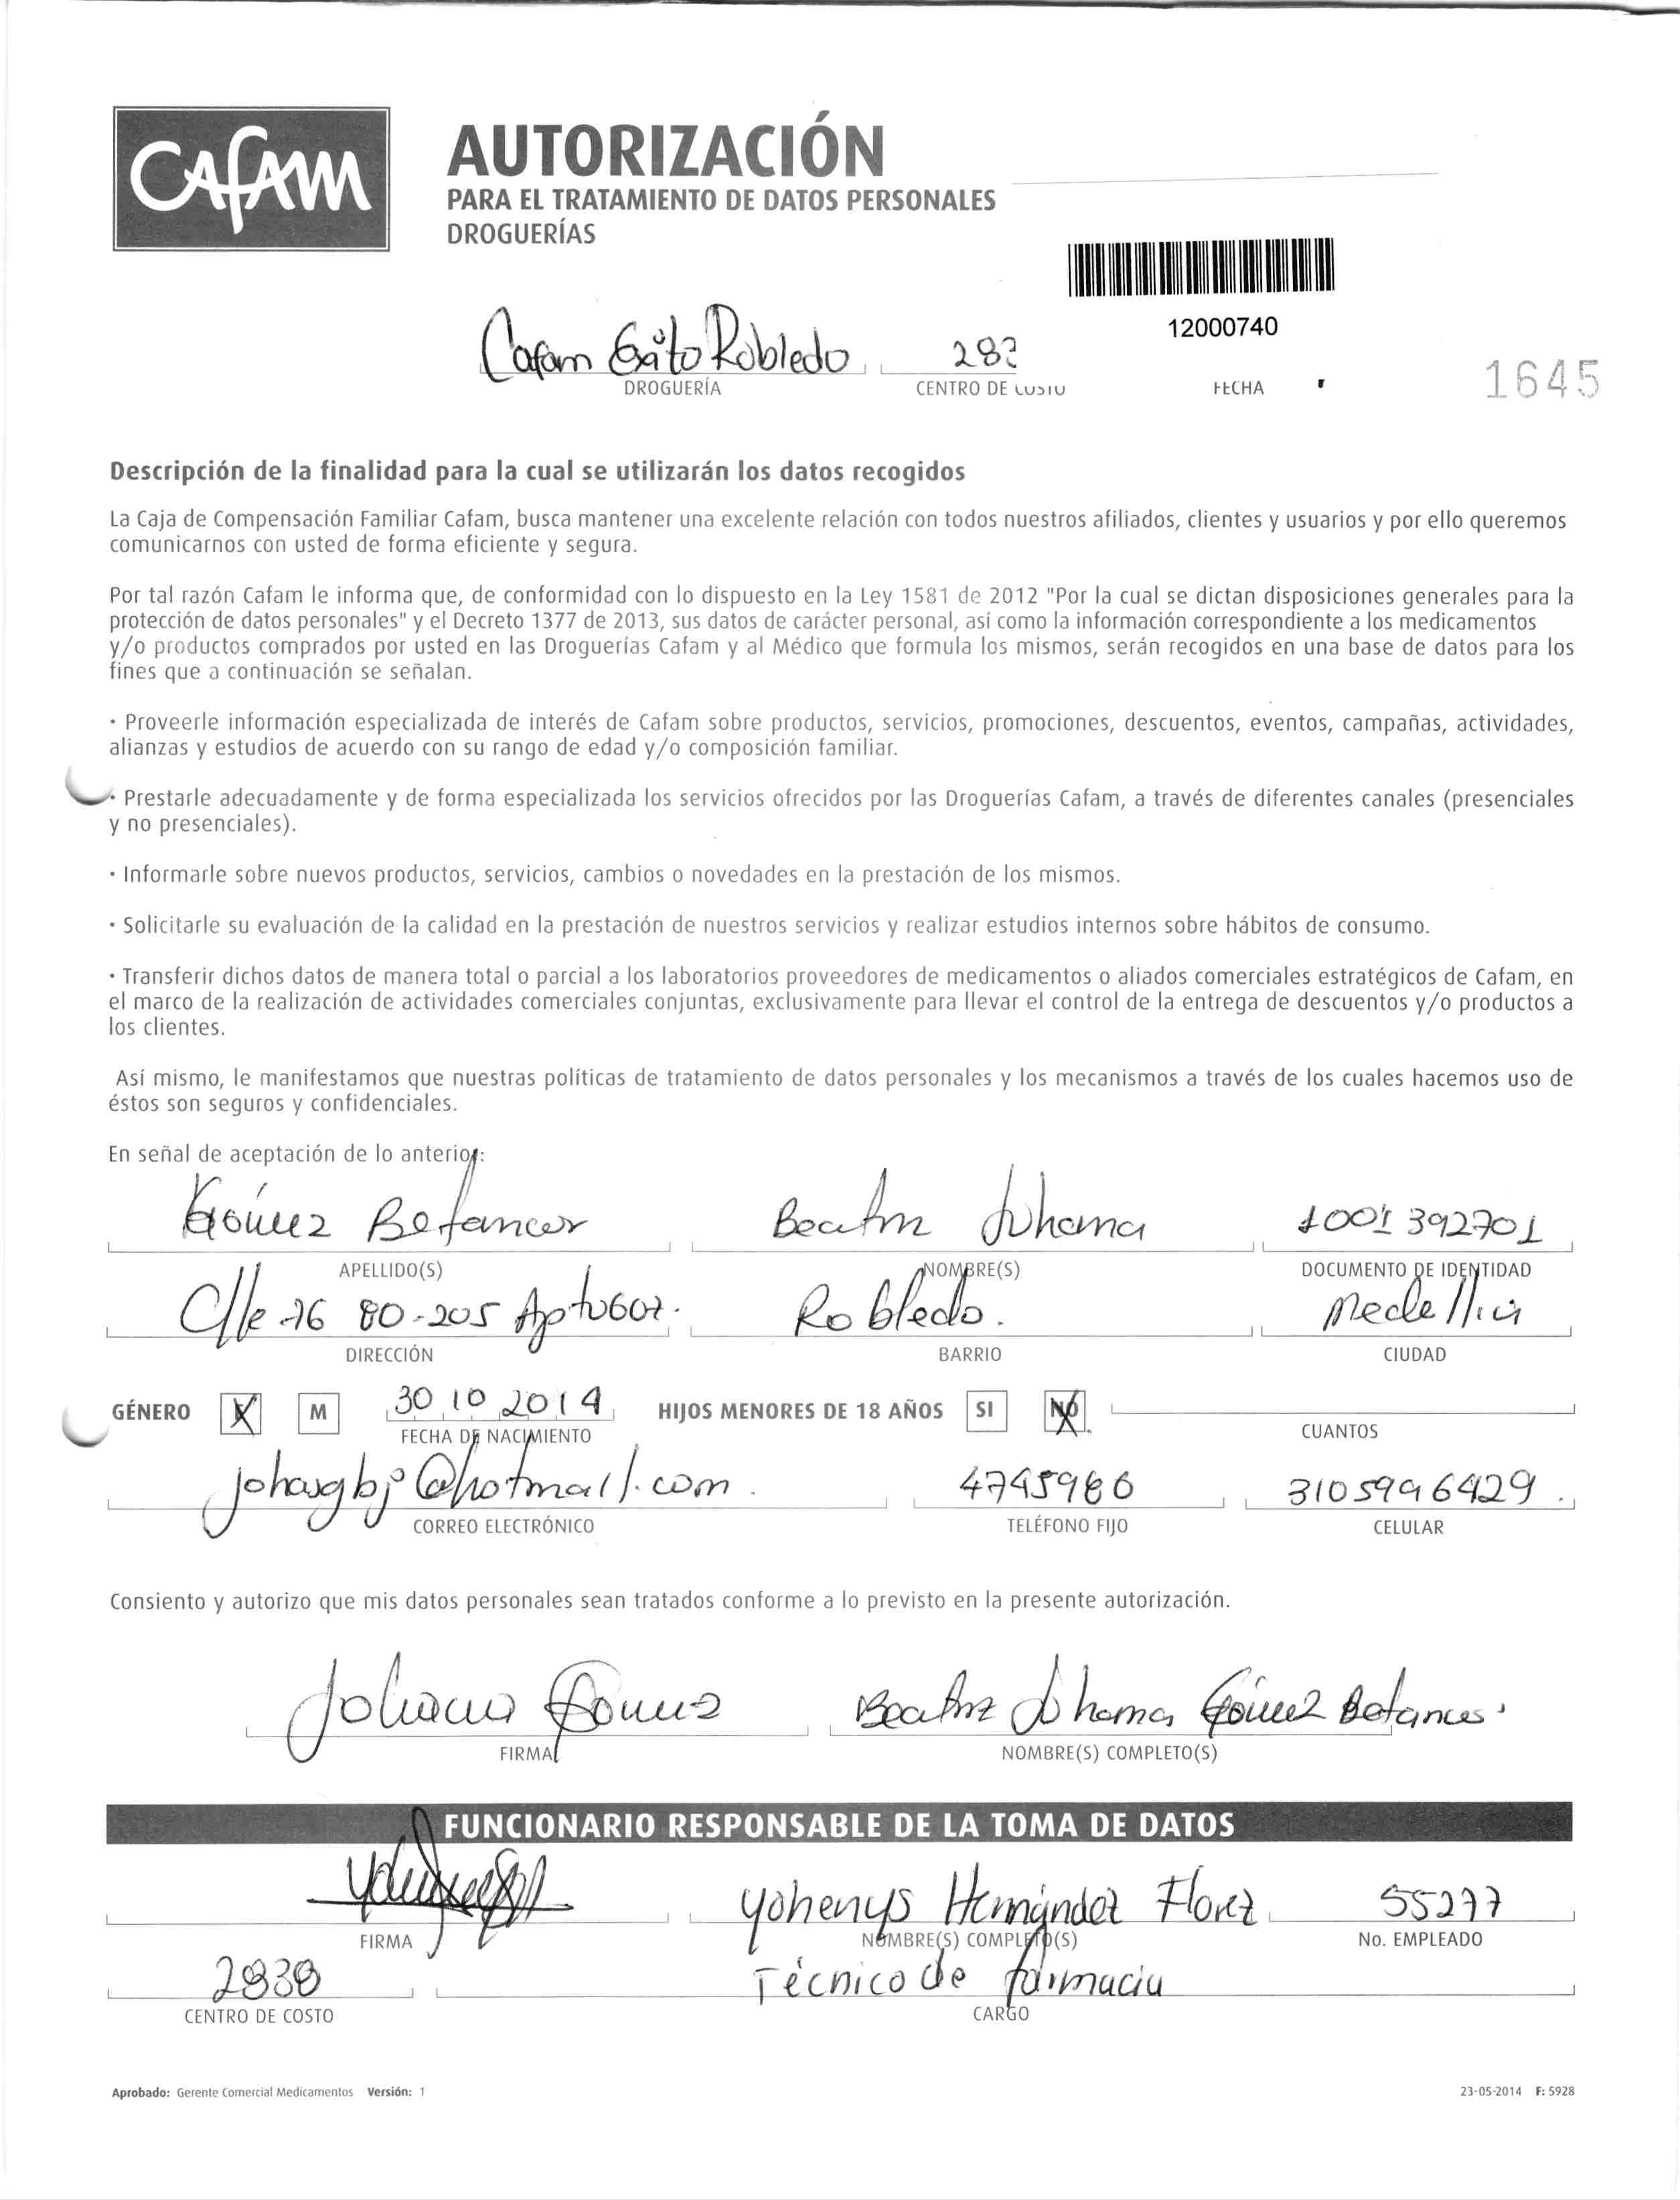 CAFAM
AUTORIZACIÓN
PARA EL TRATAMIENTO DE DATOS PERSONALES
DROGUERÍAS
12000740
Cafam Exito Robledo 282
DROGUERÍA CENTRO DE COSTO FECHA 1645
Descripción de la finalidad para la cual se utilizarán los datos recogidos
La Caja de Compensación Familiar Cafam, busca mantener una excelente relación con todos nuestros afiliados, clientes y usuarios y por ello queremos
comunicarnos con usted de forma eficiente y segura.
Por tal razón Cafam le informa que, de conformidad con lo dispuesto en la Ley 1581 de 2012 "Por la cual se dictan disposiciones generales para la
protección de datos personales" y el Decreto 1377 de 2013, sus datos de carácter personal, así como la información correspondiente a los medicamentos
y/o productos comprados por usted en las Droguerías Cafam y al Médico que formula los mismos, serán recogidos en una base de datos para los
fines que a continuación se señalan.
· Proveerle información especializada de interés de Cafam sobre productos, servicios, promociones, descuentos, eventos, campañas, actividades,
alianzas y estudios de acuerdo con su rango de edad y/o composición familiar.
· Prestarle adecuadamente y de forma especializada los servicios ofrecidos por las Droguerías Cafam, a través de diferentes canales (presenciales
y no presenciales).
· Informarle sobre nuevos productos, servicios, cambios o novedades en la prestación de los mismos.
· Solicitarle su evaluación de la calidad en la prestación de nuestros servicios y realizar estudios internos sobre hábitos de consumo.
· Transferir dichos datos de manera total o parcial a los laboratorios proveedores de medicamentos o aliados comerciales estratégicos de Cafam, en
el marco de la realización de actividades comerciales conjuntas, exclusivamente para llevar el control de la entrega de descuentos y/o productos a
los clientes.
Así mismo, le manifestamos que nuestras políticas de tratamiento de datos personales y los mecanismos a través de los cuales hacemos uso de
éstos son seguros y confidenciales.
En señal de aceptación de lo anterior:
Gómez Betancur Beatriz Johana 1001392701
APELLIDO(S) NOMBRE(S) DOCUMENTO DE IDENTIDAD
Clle 76 80-205 Apto607. Robledo. Medellin
DIRECCIÓN BARRIO CIUDAD
GÉNERO M 30 10 2014 HIJOS MENORES DE 18 AÑOS SI NO
FECHA DE NACIMIENTO CUANTOS
@hotmail.com. 4745986 3105996429.
CORREO ELECTRÓNICO TELÉFONO FIJO CELULAR
Consiento y autorizo que mis datos personales sean tratados conforme a lo previsto en la presente autorización.
Johana Gómez Beatriz Johana Gómez Betancur
FIRMA NOMBRE(S) COMPLETO(S)
FUNCIONARIO RESPONSABLE DE LA TOMA DE DATOS
Yohenys Hernández Florez 55277
FIRMA NOMBRE(S) COMPLETO(S) No. EMPLEADO
2838 Técnico de farmacia
CENTRO DE COSTO CARGO
Aprobado: Gerente Comercial Medicamentos Versión: 1 23-05-2014 F: 5928